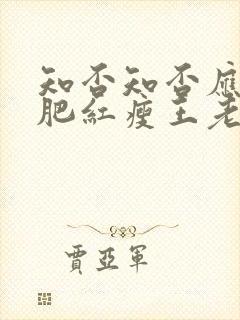 知否知否應
肥紅瘦王老
賈亞軍